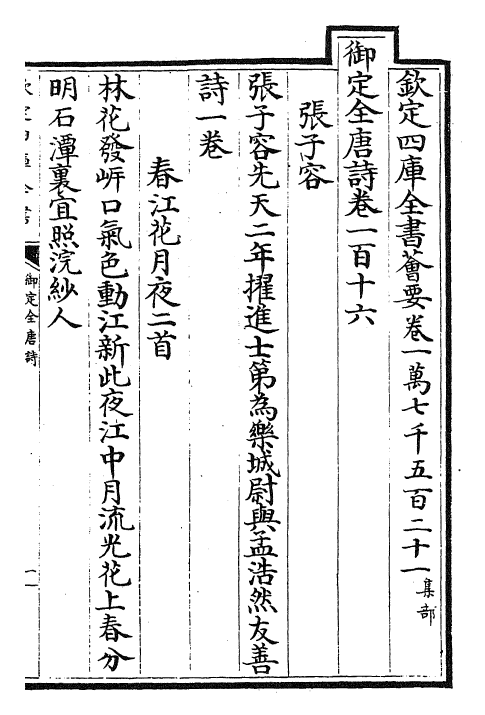 欽定四庫全書薈要卷一萬七千五百二十一集部
御定全唐詩卷一百十六
張子容
張子容先天二年擢進士第為樂城尉與孟浩然友善
詩一卷
春江花月夜二首
林花發岍口氣色動江新此夜江中月流光花上春分
明石潭裏宜照浣紗人
御定全唐詩